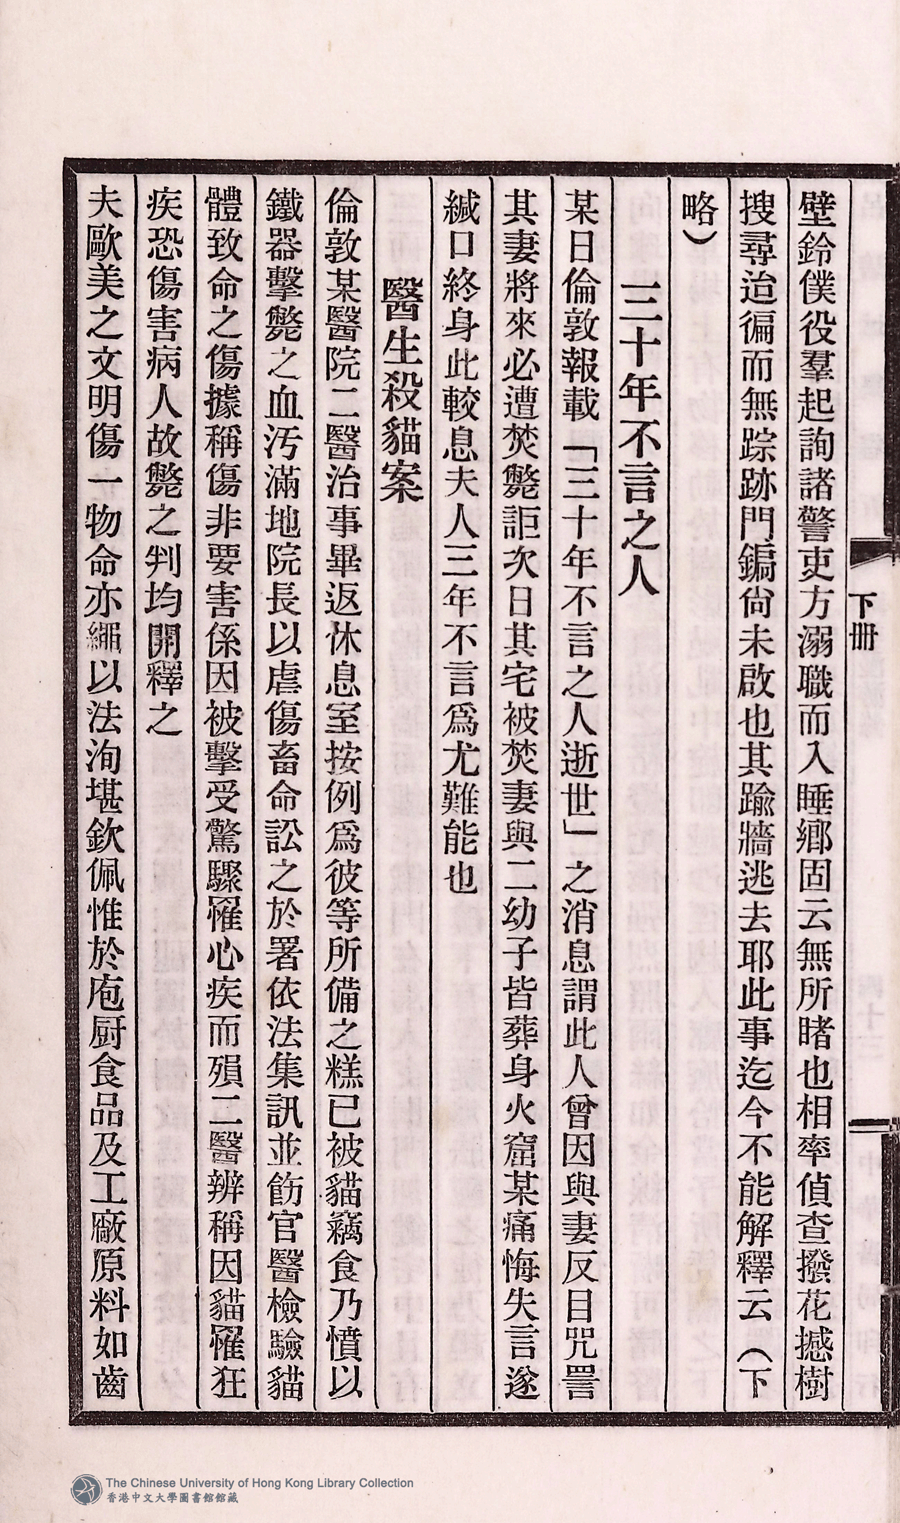 壁鈴僕役羣起詢諸警吏方溺職而入睡鄉固云無所睹也相率偵查撥花撼樹
搜尋迨徧而無踪跡門鍋尙未啟也其踰牆逃去耶此事迄今不能解釋云（下
略）
三十年不言之人
某日倫敦報載「三十年不言之人逝世」之消息謂此人曾因與妻反目咒詈
其妻將來必遭焚斃詎次日其宅被焚妻與二幼子皆葬身火窟某痛悔失言遂
緘口終身此較息夫人三年不言爲尤難能也
醫生殺貓案
倫敦某醫院二醫治事畢返休息室按例爲彼等所備之糕已被貓竊食乃憤以
鐵器擊斃之血汚滿地院長以虐傷畜命訟之於署依法集訊並飭官醫檢驗貓
體致命之傷據稱傷非要害係因被擊受驚驟罹心疾而殞二醫辨稱因貓罹狂
疾恐傷害病人故斃之判均開釋之
夫歐美之文明傷一物命亦繩以法洵堪欽佩惟於庖厨食品及工廠原料如齒
下冊
The Chinese University of Hong Kong Library Collection
香港中文大學圖書館館藏